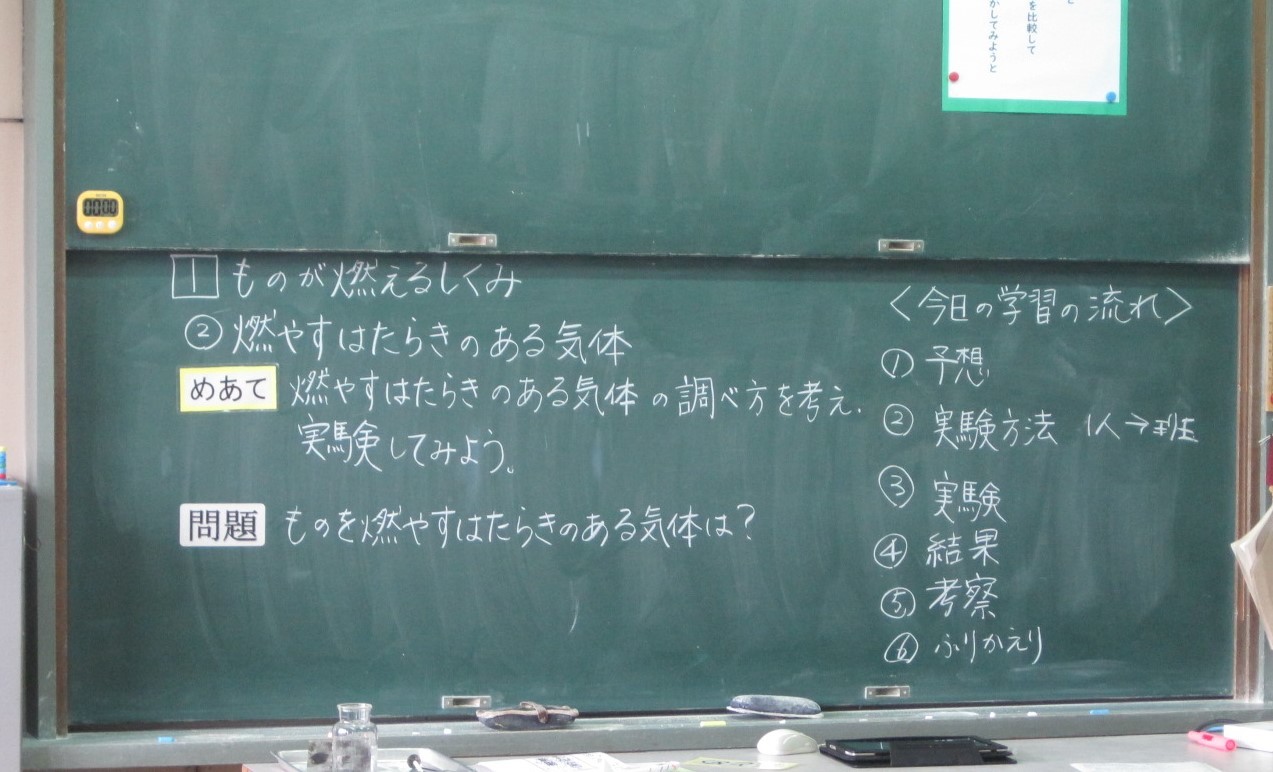 と
を比較して
かしてみようと
00:00
1 ものが燃えるしくみ
② 燃やすはたらきのある気体
めあて 燃やすはたらきのある気体の調べ方を考え、
実験してみよう。
問題 ものを燃やすはたらきのある気体は?
〈今日の学習の流れ〉
① 予想
② 実験方法 1人→班
③ 実験
④ 結果
⑤ 考察
⑥ ふりかえり